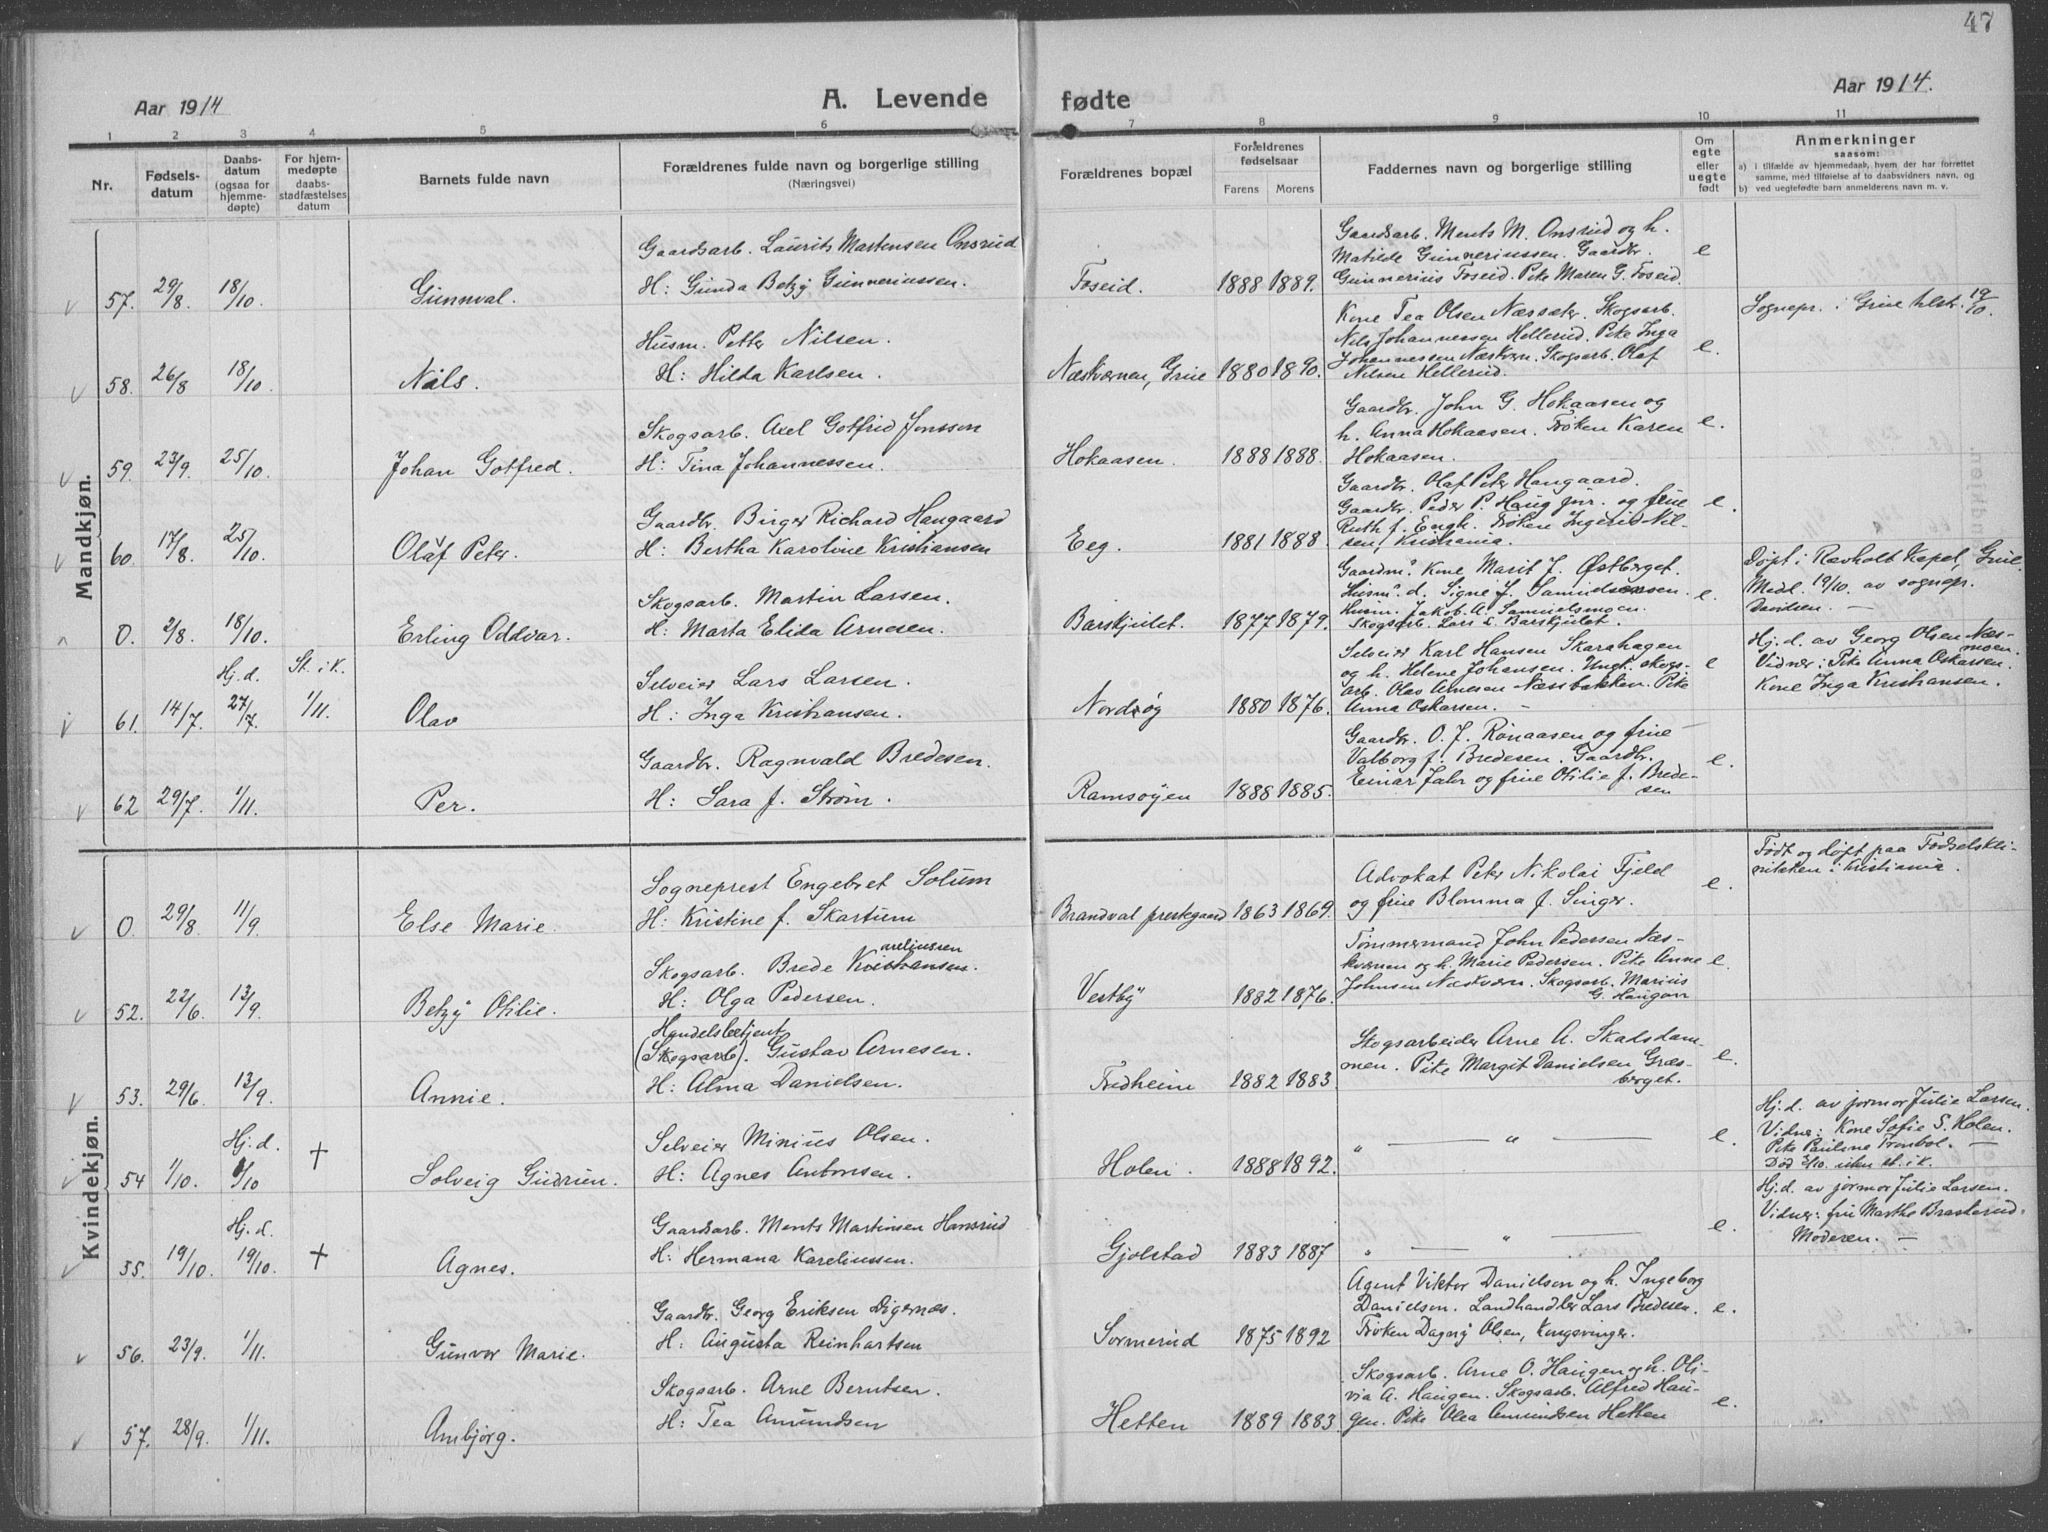 47
Aar 1914
A. Levende
fødte
Aar 1914.
1 2 3 4 5 6 7 8 9 10 11
Nr.
Fødsels-
datum
Daabs-
datum
(ogsaa for
hjemme-
døpte)
For hjem-
medøpte
daabs-
stadfæstelses
datum
Barnets fulde navn
Forældrenes fulde navn og borgerlige stilling
(Næringsvei)
Forældrenes bopæl
Forældrenes
fødselsaar
Farens Morens
Faddernes navn og borgerlige stilling
Om
egte
eller
uegte
født
Anmerkninger
saasom:
a) i tilfælde av hjemmedaab, hvem der har forrettet
samme, med tilføielse af to daabsvidners navn, og
b) ved uegtefødte barn anmelderens navn m. v.
Mandkjøn.
57. 29/8 18/10 Gunnval.
Gaardsarb. Laurits Martensen Onsrud
H: Gunda Betzy Gunneriussen.
Foseid. 1888 1889.
Gaardsarb. Ments M. Onsrud og h.
Matilde Gunneriussen. Gaardbr.
Gunnerius Foseid. Pike Maren G. Foseid
e
58. 26/8 18/10 Nils.
Husm. Petter Nilsen.
H: Hilda Karlsen.
Næskvernen, Grue 1880 1890.
Kone Tea Olsen Næssæter. Skogsarb.
Nils Johannessen Hellerud. Pike Inga
Johannessen Næskvern. Skogsarb. Olaf
Nilsen Hellerud.
e.
Sognepr. i Grue tilstr. 19/10.
59. 23/9. 25/10. Johan Gotfred.
Skogsarb. Axel Gotfrid Jonsson
H: Tina Johannessen.
Hokaasen. 1888 1888.
Gaardbr. John G. Hokaasen og
h. Anna Hokaasen. Frøken Karen
Hokaasen.
e.
60. 17/8. 25/10. Olaf Peter.
Gaardbr. Birger Richard Haugaard
H: Bertha Karoline Kristiansen
Eeg. 1881 1888.
Gaardbr. Olaf Peter Haugaard.
Gaardbr. Peder P. Haug jnr. og frue
Ruth f. Engh. Frøken Ingerid Nil-
sen, Kristiania.
e.
0. 2/8. 18/10. Erling Oddvar.
Skogsarb. Martin Larsen.
H: Marta Elida Arnesen.
Barskjulet. 1877 1879.
Gaardm. Kone Marit J. Østberget.
Husm. d. Signe J. Samuelsen.
Husm. Jakob A. Samuelsmoen.
Skogsarb. Lars L. Barskjulet.
e.
Døpt i Revholt Kapel, Grue.
Medl. 19/10. av sognepr.
Davidsen. —
61. 14/7. Hj. d. 27/7 St. i K. 1/11. Olav
Selveier Lars Larsen.
H: Inga Kristiansen.
Nordøg 1880 1876.
Selveier Karl Hansen Skarahagen
og h. Helene Johansen. Ungk. skogs-
arb. Olav Arnesen Næssbakken. Pike
Anna Oskarsen. —
e
Hj. d. av Georg Olsen Næs-
moen.
Vidner: Pike Anna Oskarsen.
Kone Inga Kristiansen.
62 29/7. 1/11. Per.
Gaardbr. Ragnvald Bredesen.
H: Sara f. Strøm.
Ramsøyen 1888 1885.
Gaardbr. O. J. Rønaasen og frue
Valborg f. Bredesen. Gaardbr.
Einar Jahr og frue Otilie f. Brede-
sen
e.
Kvindekjøn.
0. 29/8 11/9. Else Marie.
Sogneprest Engebret Solum
H: Kristine f. Skartum
Brandval prestegaard 1863 1869.
Advokat Peter Nikolai Fjeld
og frue Blomma f. Singer.
e.
Født og døpt paa Fødselskli-
nikken i Kristiania.
52. 22/6. 13/9. Betzy Otilie.
Skogsarb. Brede Kristiansen.
areliussen
H: Olga Pedersen.
Vestby 1882 1876.
Tømmermand John Pedersen Næs-
kvernen og h. Marie Pedersen. Pike Anne
Johnsen Næskvern. Skogsarb. Marius
G. Haugan
e.
53. 29/6 13/9. Annie.
Handelsbetjent
(Skogsarb). Gustav Arnesen.
H: Alma Danielsen.
Fredheim 1882 1883
Skogsarbeider Arne A. Skalsdam-
men. Pike Margit Danielsen Græs-
berget.
e.
54 1/10. Hj. d. 1/10 + Solveig Gudrun.
Selveier Minius Olsen.
H: Agnes Antonsen.
Holen. 1888 1892.
" — " —
e.
Hj. d. av jormor Julie Larsen.
Vidner: Kone Sofie S. Holen.
Pike Pauline Trønbol. —
Død 2/10. uten st. i k.
55. 19/10. Hj. d. 19/10. + Agnes.
Gaardsarb. Ments Martinsen Hansrud
H: Hermana Kareliussen.
Gjølstad 1883 1887
" — " —
e.
Hj. d. av jormor Julie Larsen.
Vidner: frue Marthe Brasterud.
Moderen. —
56. 23/9. 1/11. Gunvor Marie.
Gaardbr. Georg Eriksen Digernæs.
H: Augusta Reinhartsen
Sormerud 1875 1892
Agent Viktor Danielson og h. Ingeborg
Danielson. Landhandler Lars Bredesen.
Frøken Dagny Olsen, Kongsvinger.
e.
57. 28/9. 1/11. Ambjørg.
Skogsarb. Arne Berntsen.
H: Tea Amundsen
Hetten 1889 1883.
Skogsarb. Arne O. Haugen og h. Oli-
via A. Haugen. Skogsarb. Alfred Hau-
gen. Pike Olea Amundsen Hetten
e.